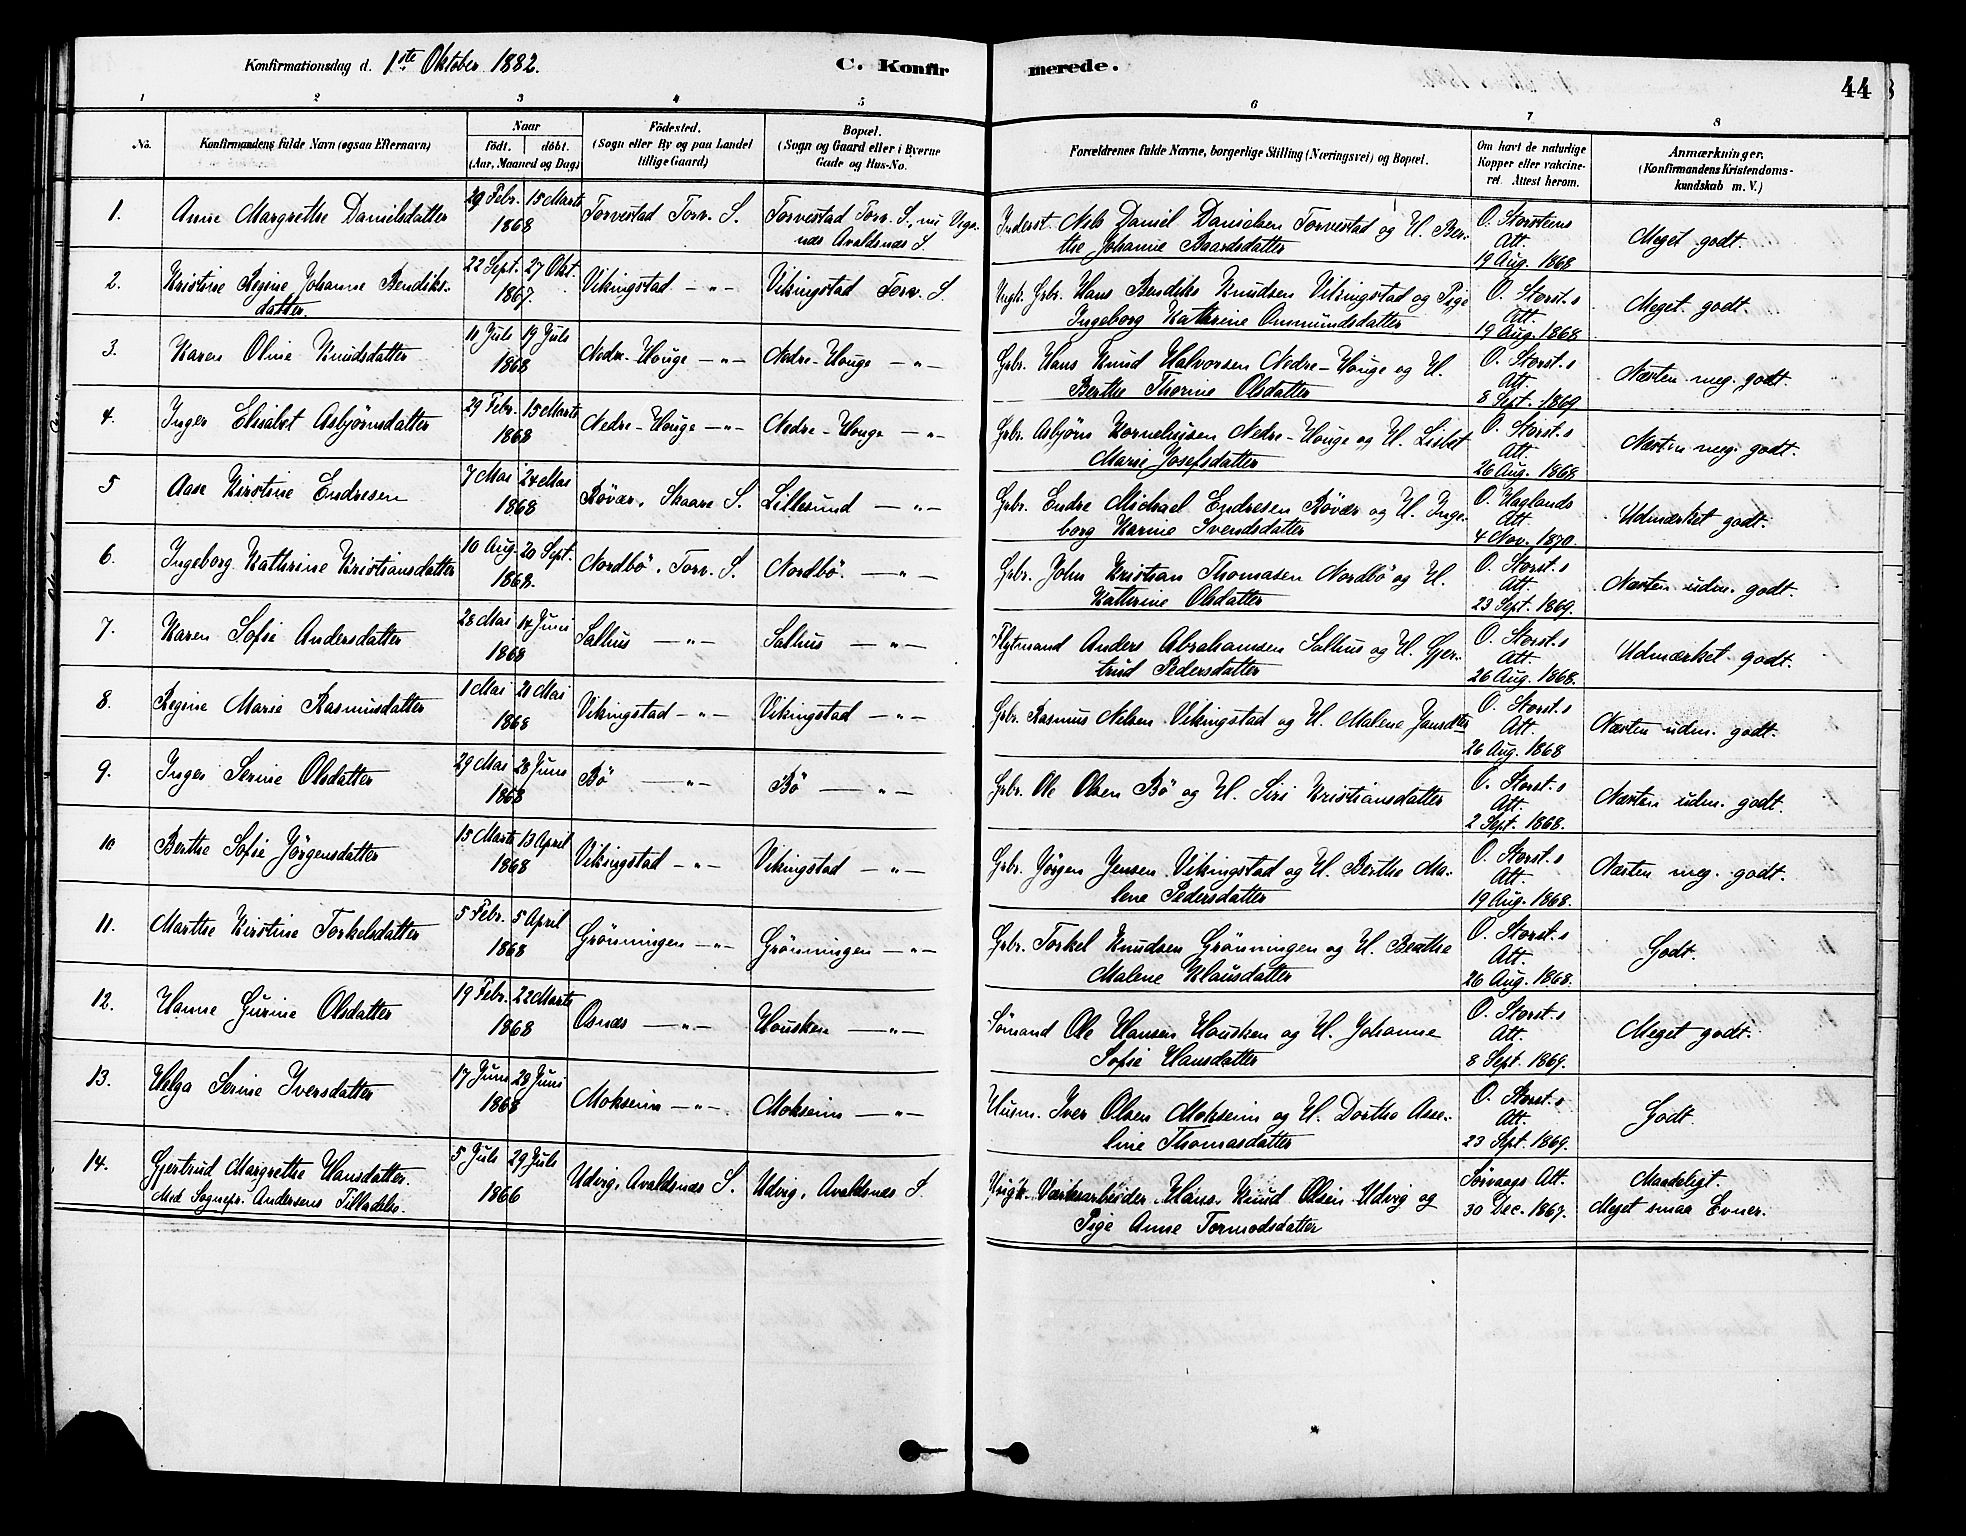 Konfirmationsdag d. 1ste Oktober 1882.
C. Konfirmerede.
44
1 2 3 4 5 6 7 8
No.
Konfirmandens fulde Navn (ogsaa Efternavn)
Naar
födt. döbt.
(Aar, Maaned og Dag)
Födested.
(Sogn eller By og paa Landet
tillige Gaard)
Bopæl.
(Sogn og Gaard eller i Byerne
Gade og Hus-No.
Forældrenes fulde Navne, borgerlige Stilling (Næringsvei) og Bopæl.
Om havt de naturlige
Kopper eller vakcine-
ret. Attest herom.
Anmærkninger.
(Konfirmandens Kristendoms-
kundskab m. V.)
1. Anne Margrethe Danielsdatter 29 Febr. 15 Marts Torvestad Torv. S. Torvestad Torv. S., nu Vigs- Inderst Nels Daniel Danielsen Torvestad og H. Ber- O. Storsteins
1868 næs Avaldsnæs S the Johanne Baardsdatter Att. Meget godt.
19 Aug. 1868
2. Kristine Regine Johanne Bendiks- 22 Sept. 27 Okt. Vikingstad — " — Vikingstad Torv. S. Ungk. Grbr. Hans Bendiks Knudsen Vikingstad og Pige O. Storst.s
datter. 1867. Ingeborg Kathrine Ommundsdatter Att. Meget godt.
19 Aug. 1868.
3. Karen Oline Knudsdatter 11 Juli 19 Juli Nedre-Houge — " — Nedre-Houge — " — Grbr. Hans Knud Halvorsen Nedre-Houge og H. O. Storst.s
1868 Berthe Thorine Olsdatter Att. Næsten meg. godt.
8 Sept. 1869
4. Inger Elisabet Asbjørnsdatter 29 Febr. 15 Marts Nedre-Houge — " — Nedre-Houge — " — Grbr. Asbjørn Korneliusen Nedre-Houge og H. Lisbet O. Storst.s
1868 Marie Josefsdatter Att. Næsten meg. godt.
26 Aug. 1868
5 Aase Kirstine Endresen 7 Mai 24 Mai Røvær, Skaare S. Lillesund — " — Grbr. Endre Michael Endresen Røvær og H. Inge- O. Haglands
1868 borg Karine Svendsdatter Att. Udmærket godt.
4 Nov. 1870.
6. Ingeborg Kathrine Kristiansdatter 10 Aug. 20 Sept. Nordbö, Torv. S. Nordbö. — " — Grbr. John Kristian Thomasen Nordbö og H. O. Storst.s
1868. Kathrine Olsdatter Att. Næsten udm. godt.
23 Sept. 1869.
7. Karen Sofie Andersdatter 28 Mai 14 Juni Salhus — " — Salhus — " — Flytmand Anders Abrahamsen Salhus og H. Gjer- O. Storst.s
1868 trud Pedersdatter Att. Udmærket godt.
26 Aug. 1868.
8. Regine Marie Rasmusdatter 1 Mai 21 Mai Vikingstad — " — Vikingstad — " — Grbr. Rasmus Nelsen Vikingstad og H. Malene Jansdtr O. Storst.s
1868 Att. Næsten udm. godt.
26 Aug. 1868
9. Inger Serine Olsdatter 29 Mai 28 Juni Bö — " — Bö — " — Grbr. Ole Olsen Bö og H. Siri Kristiansdatter O. Storst.s
1868 Att. Næsten udm. godt.
2 Sept. 1868.
10 Berthe Sofie Jörgensdatter 15 Marts 13 April Vikingstad — " — Vikingstad — " — Grbr. Jörgen Jensen Vikingstad og H. Berthe Ma- O. Storst.s
1868 lene Pedersdatter Att. Næsten meg. godt.
19 Aug. 1868.
11. Marthe Kirstine Torkelsdatter 5 Febr. 5 April Grönningen — " — Grönningen — " — Grbr. Torkel Knudsen Grönningen og H. Berthe O. Storst.s
1868 Malene Klausdatter Att. Godt.
26 Aug. 1868.
12. Hanne Gurine Olsdatter 19 Febr. 22 Marts Osnæs — " — Housken — " — Sömand Ole Hansen Housken og H. Johanne O. Storst.s
1868 Sofie Hansdatter Att. Meget godt.
8 Sept. 1869.
13. Helga Serine Iversdatter 17 Juni 28 Juni Mokseim — " — Mokseim — " — Husm. Iver Olsen Mokseim og H. Dorthe Asse- O. Storst.s
1868 line Thomasdatter Att. Godt.
23 Sept. 1869.
14. Gjertrud Margrethe Hansdatter. 5 Juli 29 Juli Udvig, Avaldsnæs S. Udvig, Avaldsnæs S. Ungk. Værksarbeider Hans Knud Olsen Udvig og Sørvaags Att. Maadeligt.
Med Sognepr. Andersens Tilladelse. 1866 Pige Anne Tormodsdatter 30 Dec. 1867. Meget smaa Evner.